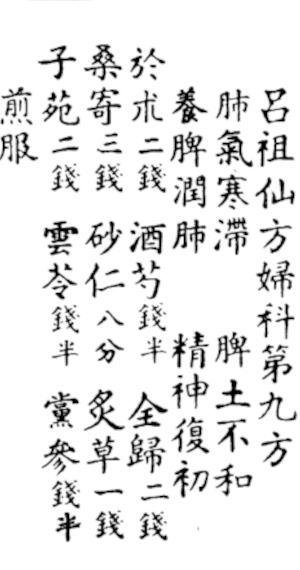 呂祖仙方婦科第九方
肺氣寒滯　脾土不和
養脾潤肺　精神復初
於朮二錢　酒芍錢半　全歸二錢
桑寄三錢　砂仁八分　炙草一錢
子苑二錢　雲苓錢半　黨參錢半
煎服